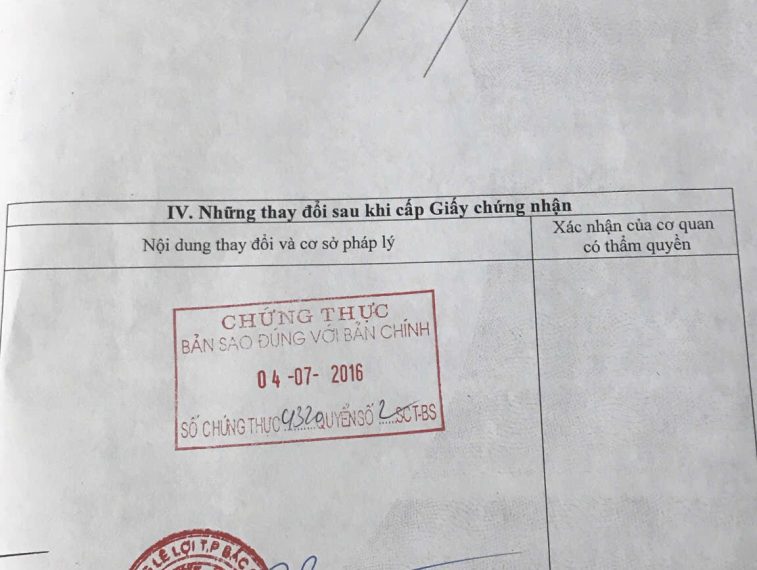 IV. Những thay đổi sau khi cấp Giấy chứng nhận
Nội dung thay đổi và cơ sở pháp lý
Xác nhận của cơ quan
có thẩm quyền
CHỨNG THỰC
BẢN SAO ĐÚNG VỚI BẢN CHÍNH
04-07-2016
SỐ CHỨNG THỰC 4320 QUYỂN SỐ 2 SCT-BS
LÊ LỢI T.P BẮC